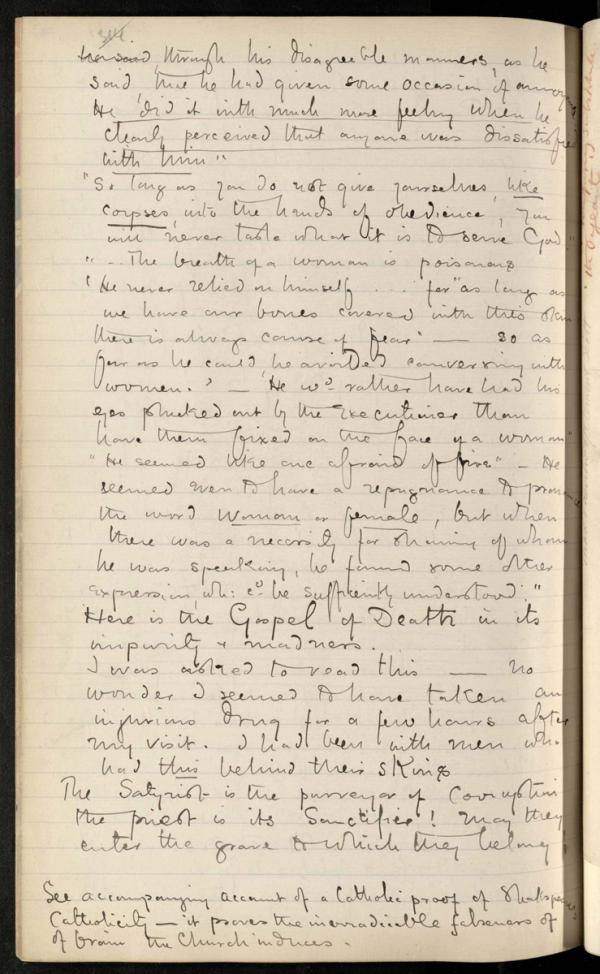 he said, through his disagreeable manners, as he
said, that he had given some occasion of annoyance
He 'did it with much more feeling when he
clearly perceived that anyone was dissatisfied
with him"
"So long as you do not give yourselves, like
corpses, into the hands of obedience, you
will never taste what it is to serve God"
" - The breath of a woman is poisonous
'He never relied on himself ... for "as long as
we have our bones covered with this skin
there is always cause of fear" — so as
far as he could, he avoided conversing with
women.' — 'He wd. rather have had his
eyes plucked out by the executioner than
have them fixed on the face of a woman"
"He seemed like one afraid of fire" - He
seemed even to have a repugnance to pronounce
the word woman or female, but when
there was a necessity for shewing of whom
he was speaking, he found some other
expression, wh: cd. be sufficiently understood."
Here is the Gospel of Death in its
impurity & madness.
I was asked to read this — no
wonder I seemed to have taken an
injurious drug for a few hours after
my visit. I had been with men who
had this behind their skins
The Satyrist is the purveyor of Corruption
the priest is its Sanctifier! May they
enter the grave to which they belong!
See accompanying account of a Catholic proof of Shakspeare's
Catholicity — it proves the ineradicable falseness of
of brain the Church induces.